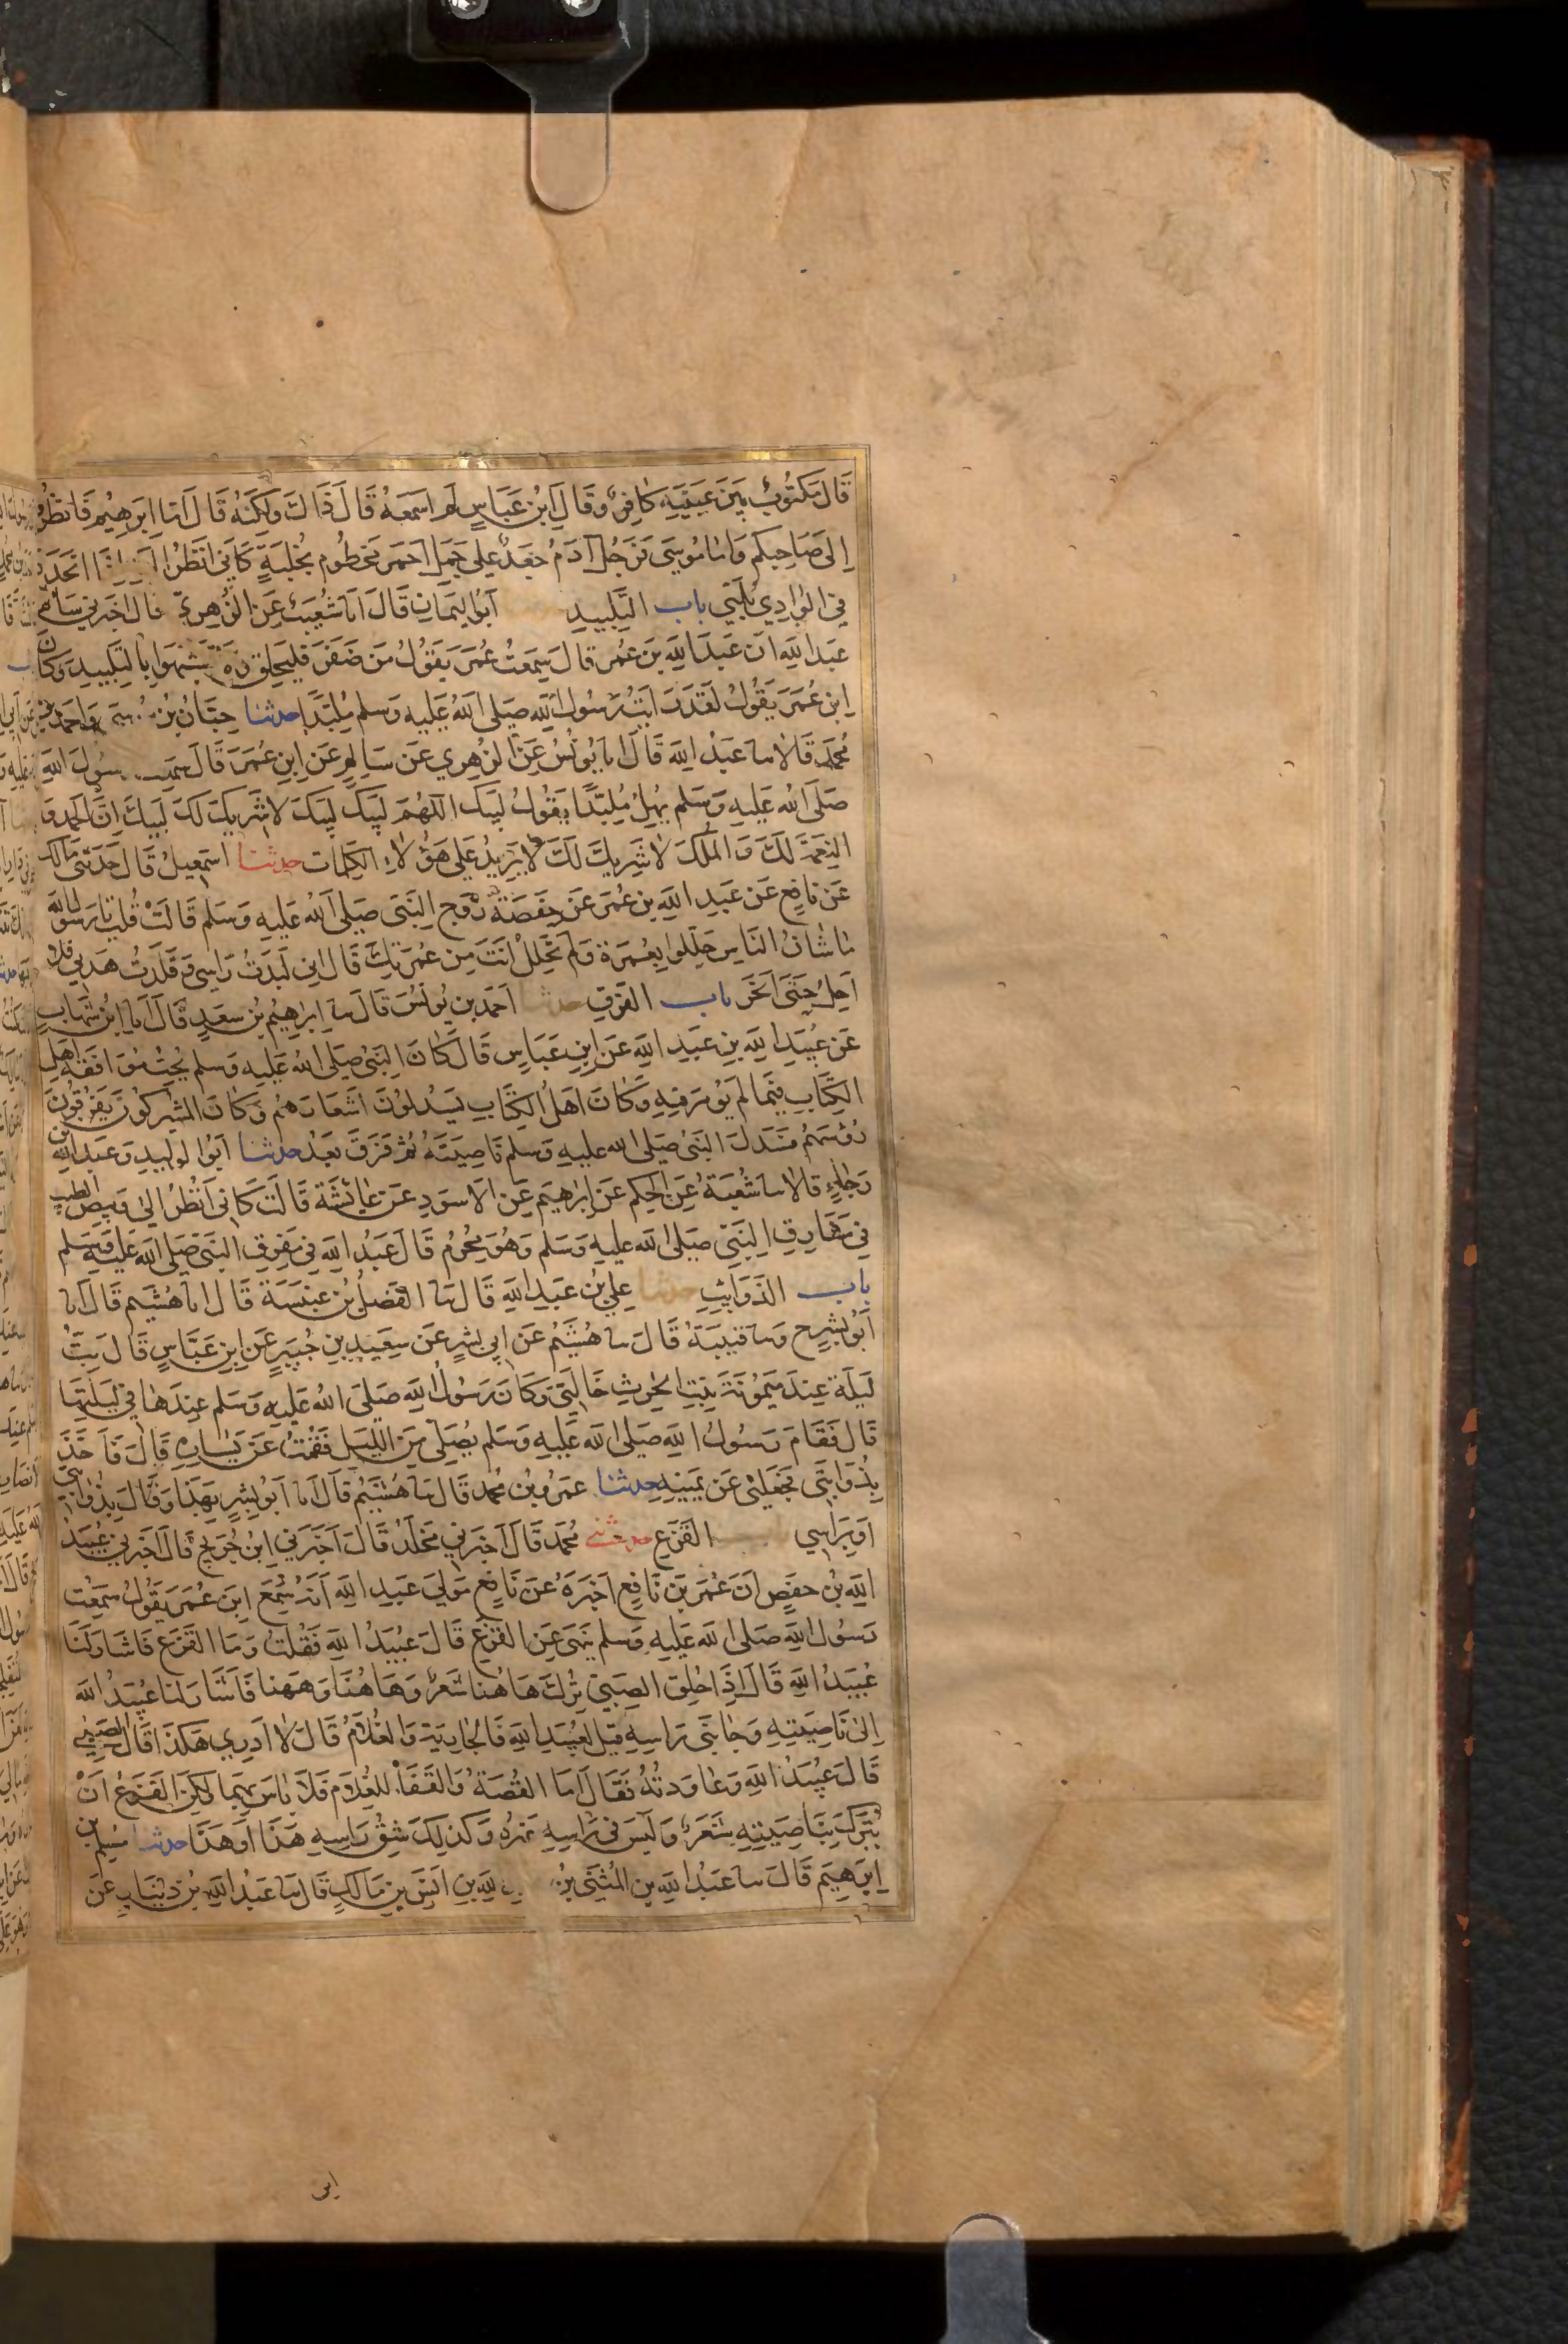 قَالَ مَكْتُوبٌ بَيْنَ عَيْنَيْهِ كَافِرٌ وَقَالَ ابْنُ عَبَّاسٍ لَمْ اَسْمَعْهُ قَالَ ذَاكَ وَلَكِنَّهُ قَالَ اَمَّا اِبرهِيْم فَانظُرُوا
اِلَى صَاحِبِكُم وَامَّا مُوسَى فَرَجُلٌ آدَمُ جَعْدٌ عَلى جَمَلٍ احْمَرَ مَخْطُوم بِخُلْبَةٍ كَاَنِّى اَنْظُرُ اِلَيْهِ اِذَا انْحَدَرَ
فِى الوَادِي يُلَبِّى باب التَّلْبِيدِ اَبُوا اليَمَانِ قَالَ انا شُعَيْبٌ عَنِ الزُّهرِيّ قال اخبرني سَالِمُ بن
عَبدِ اللّهِ ان عَبدَ اللّهِ بنَ عُمَر قالَ سَمِعتُ عُمَرَ يَقُولُ مَن ضَفَّرَ فَليَحلِق وَلا تَشَبَّهُوا بِالتَّلْبِيدِ وَكَانَ
ابن عُمَرَ يَقُولُ لَقَدْ رَايْتُ رَسُولَ اللّهِ صَلى اللّهُ عَلَيهِ وَسلم مُلَبِّدًا حدثنا حِبَّانُ بنُ مُوسى وَاحمد بن
مُحَمَّد قَالَا نا عَبْدُ اللّهِ قَالَ انا يُونُسُ عَنِ الزُّهرِي عَن سَالِمٍ عَن اِبنِ عُمَرَ قَالَ سَمِعتُ رسُولَ اللّهِ
صَلّى اللّه عَلَيهِ وَسَلم يُهِلُّ مُلَبِّدًا يَقُولُ لَبَّيكَ اللّهُمَّ لَبَّيك لَبَّيكَ لا شَريكَ لَكَ لَبَّيكَ اِنَّ الحَمدَ وَ
النِّعمَةَ لَكَ وَ المُلكَ لا شَرِيكَ لَكَ لا يَزِيدُ عَلى هَؤُلاءِ الكَلِمات حدثنا اسمعيلُ قَالَ حَدثَنِى مَالك
عَن نافِع عَن عَبدِ اللّهِ بنِ عُمَر عَن حَفصَةَ زَوجِ النَّبِى صَلى اللّهُ عَلَيهِ وَسَلم قَالَتْ قُلتُ يَا رَسُولَ اللّه
ما شَانُ النَّاس حَلُّوا بِعُمرَة وَلَم تَحْلِلْ انتَ مِن عُمرَتِكَ قَالَ اِنِّى لَبَّدْتُ رَاسِى وَ قَلَّدتُ هَديِى فَلا
اَحِلُّ حَتّى اَنحَرَ باب الفَرقِ حدثنا احمَد بن يُونُسَ قَالَ نا اِبرَاهِيمُ بنُ سَعدٍ قَالَ انا ابنُ شِهَابٍ
عَن عُبَيدِ اللّهِ بنِ عَبدِ اللّهِ عَنِ ابنِ عَبَّاسٍ قَالَ كَانَ النَّبىُّ صَلى اللّهُ عَلَيهِ وَسلم يُحِبُّ مُوَافَقَةَ اَهلِ
الكِتَابِ فِيمَا لَم يُؤمَر فِيهِ وَكَانَ اَهلُ الكِتَابِ يَسدِلُونَ اَشعَارَهُم وَكَانَ المُشركُونَ يَفرُقُونَ
رُؤسَهُم فَسَدَلَ النَّبىُّ صَلى اللّه عليهِ وَسلم نَاصِيَتَهُ ثُمَّ فَرَقَ بَعدُ حدثنا اَبُوا لوليدِ وَ عَبدُ اللّهِ بن
رَجَاءٍ قالا نا شُعبَةُ عَنِ الحَكم عَن اِبرَاهِيم عَنِ الاسوَدِ عَن عَائِشَةَ قَالَت كَاَنِّى اَنظُرُ الى وَبِيصِ الطِّيبِ
فِى مَفَارِقِ النَّبِىِّ صَلى اللّه عليهِ وَسَلم وَهُوَ مُحرِمٌ قَالَ عَبدُ اللّهِ فِى مَفرِقِ النَّبىِّ صَلى اللّه عَلَيهِ وَسلم
باب الذَّوَايِبِ حدثنا عليُّ بنُ عَبدِ اللّهِ قَالَ نا الفَضلُ بنُ عَنبَسَةَ قَالَ انا هُشَيم قَالَ انا
اَبُو بِشرٍ ح وَنا قتيبَةُ قَالَ نا هُشَيمٌ عَن اَبِى بِشرٍ عَن سَعِيدِ بنِ جُبَيرٍ عَنِ ابنِ عَبَّاسٍ قَالَ بِتُّ
لَيلَة عِندَ مَيمُونَةَ بِنتِ الحرِث خَالَتِى وَكَانَ رَسُولُ اللّهِ صَلّى اللّهُ عَليهِ وَسَلم عِندَهَا فِى لَيلَتِهَا
قَالَ فَقَامَ رَسُولُ اللّهِ صَلى اللّه عَلَيهِ وَسَلم يُصَلِّى مِنَ اللَّيلِ فَقُمتُ عَن يَسَارِهِ قَالَ فَاَخَذَ
بِذُوَابَتِى فَجَعَلَنِى عَن يَمِينِهِ حدثنا عَمرُو بنُ مُحمد قَالَ نا هُشَيمٌ قَالَ انا اَبُو بِشرٍ بِهَذَا وَقَالَ بِذُوَابَتِى
اَو بِرَاسِي القَزَعِ حدثنى مُحَمَّد قَالَ اَخبَرني مَخلَدٌ قَالَ اَخبَرَني ابنُ جُرَيج قَالَ اَخبَرنِي عُبَيدُ
اللّهِ بنُ حَفصٍ اَنَّ عُمَرَ بنَ نَافِعٍ اَخبَرَهُ عَن نَافِعٍ مَولَى عَبدِ اللّهِ اَنَّهُ سَمِعَ ابنَ عُمَرَ يَقُولُ سَمِعتُ
رَسُولَ اللّهِ صَلى اللّه عَلَيهِ وَسلم يَنهَى عَنِ القَزَعِ قَالَ عُبَيدُ اللّهِ فَقُلتُ وَمَا القَزَع فَاَشَارَ لَنَا
عُبَيدُ اللّهِ قَالَ اِذَا حُلِقَ الصَّبِىّ تُرِكَ هَا هُنا شَعرٌ وَهَا هُنَا وَهَهُنا فَاَشَارَ لَنا عُبَيدُ اللّه
اِلىٰ نَاصِيَتِهِ وَجَانِبَى رَاسِهِ قِيلَ لِعُبَيدِ اللّهِ فَالجَارِيَة وَالغُلَامُ قَالَ لا اَدرِي هَكَذَا قَالَ الصَّبِىّ
قَالَ عُبَيدُ اللّهِ وَعَاوَدتُهُ فَقَالَ اَمَا القُصَّةُ وَالقَفَا لِلغُلَام فَلَا بَاسَ بِهِما لَكِنَّ القَزَعَ اَنْ
يُترَكَ بِنَاصِيَتِهِ شَعَرٌ وَلَيسَ فى رَاسِهِ غَيرُه وَكَذلِكَ شِقُّ رَاسِهِ هَذَا اَو هَذَا حدثنا مُسلم بن
اِبرَهِيمَ قَالَ نا عَبدُ اللّهِ بن المُثَنَّى بنُ اللّهِ بنِ انَسِ بنِ مَالكٍ قَالَ نا عَبدُ اللّهِ بنُ دِينَارٍ عَن
ابن